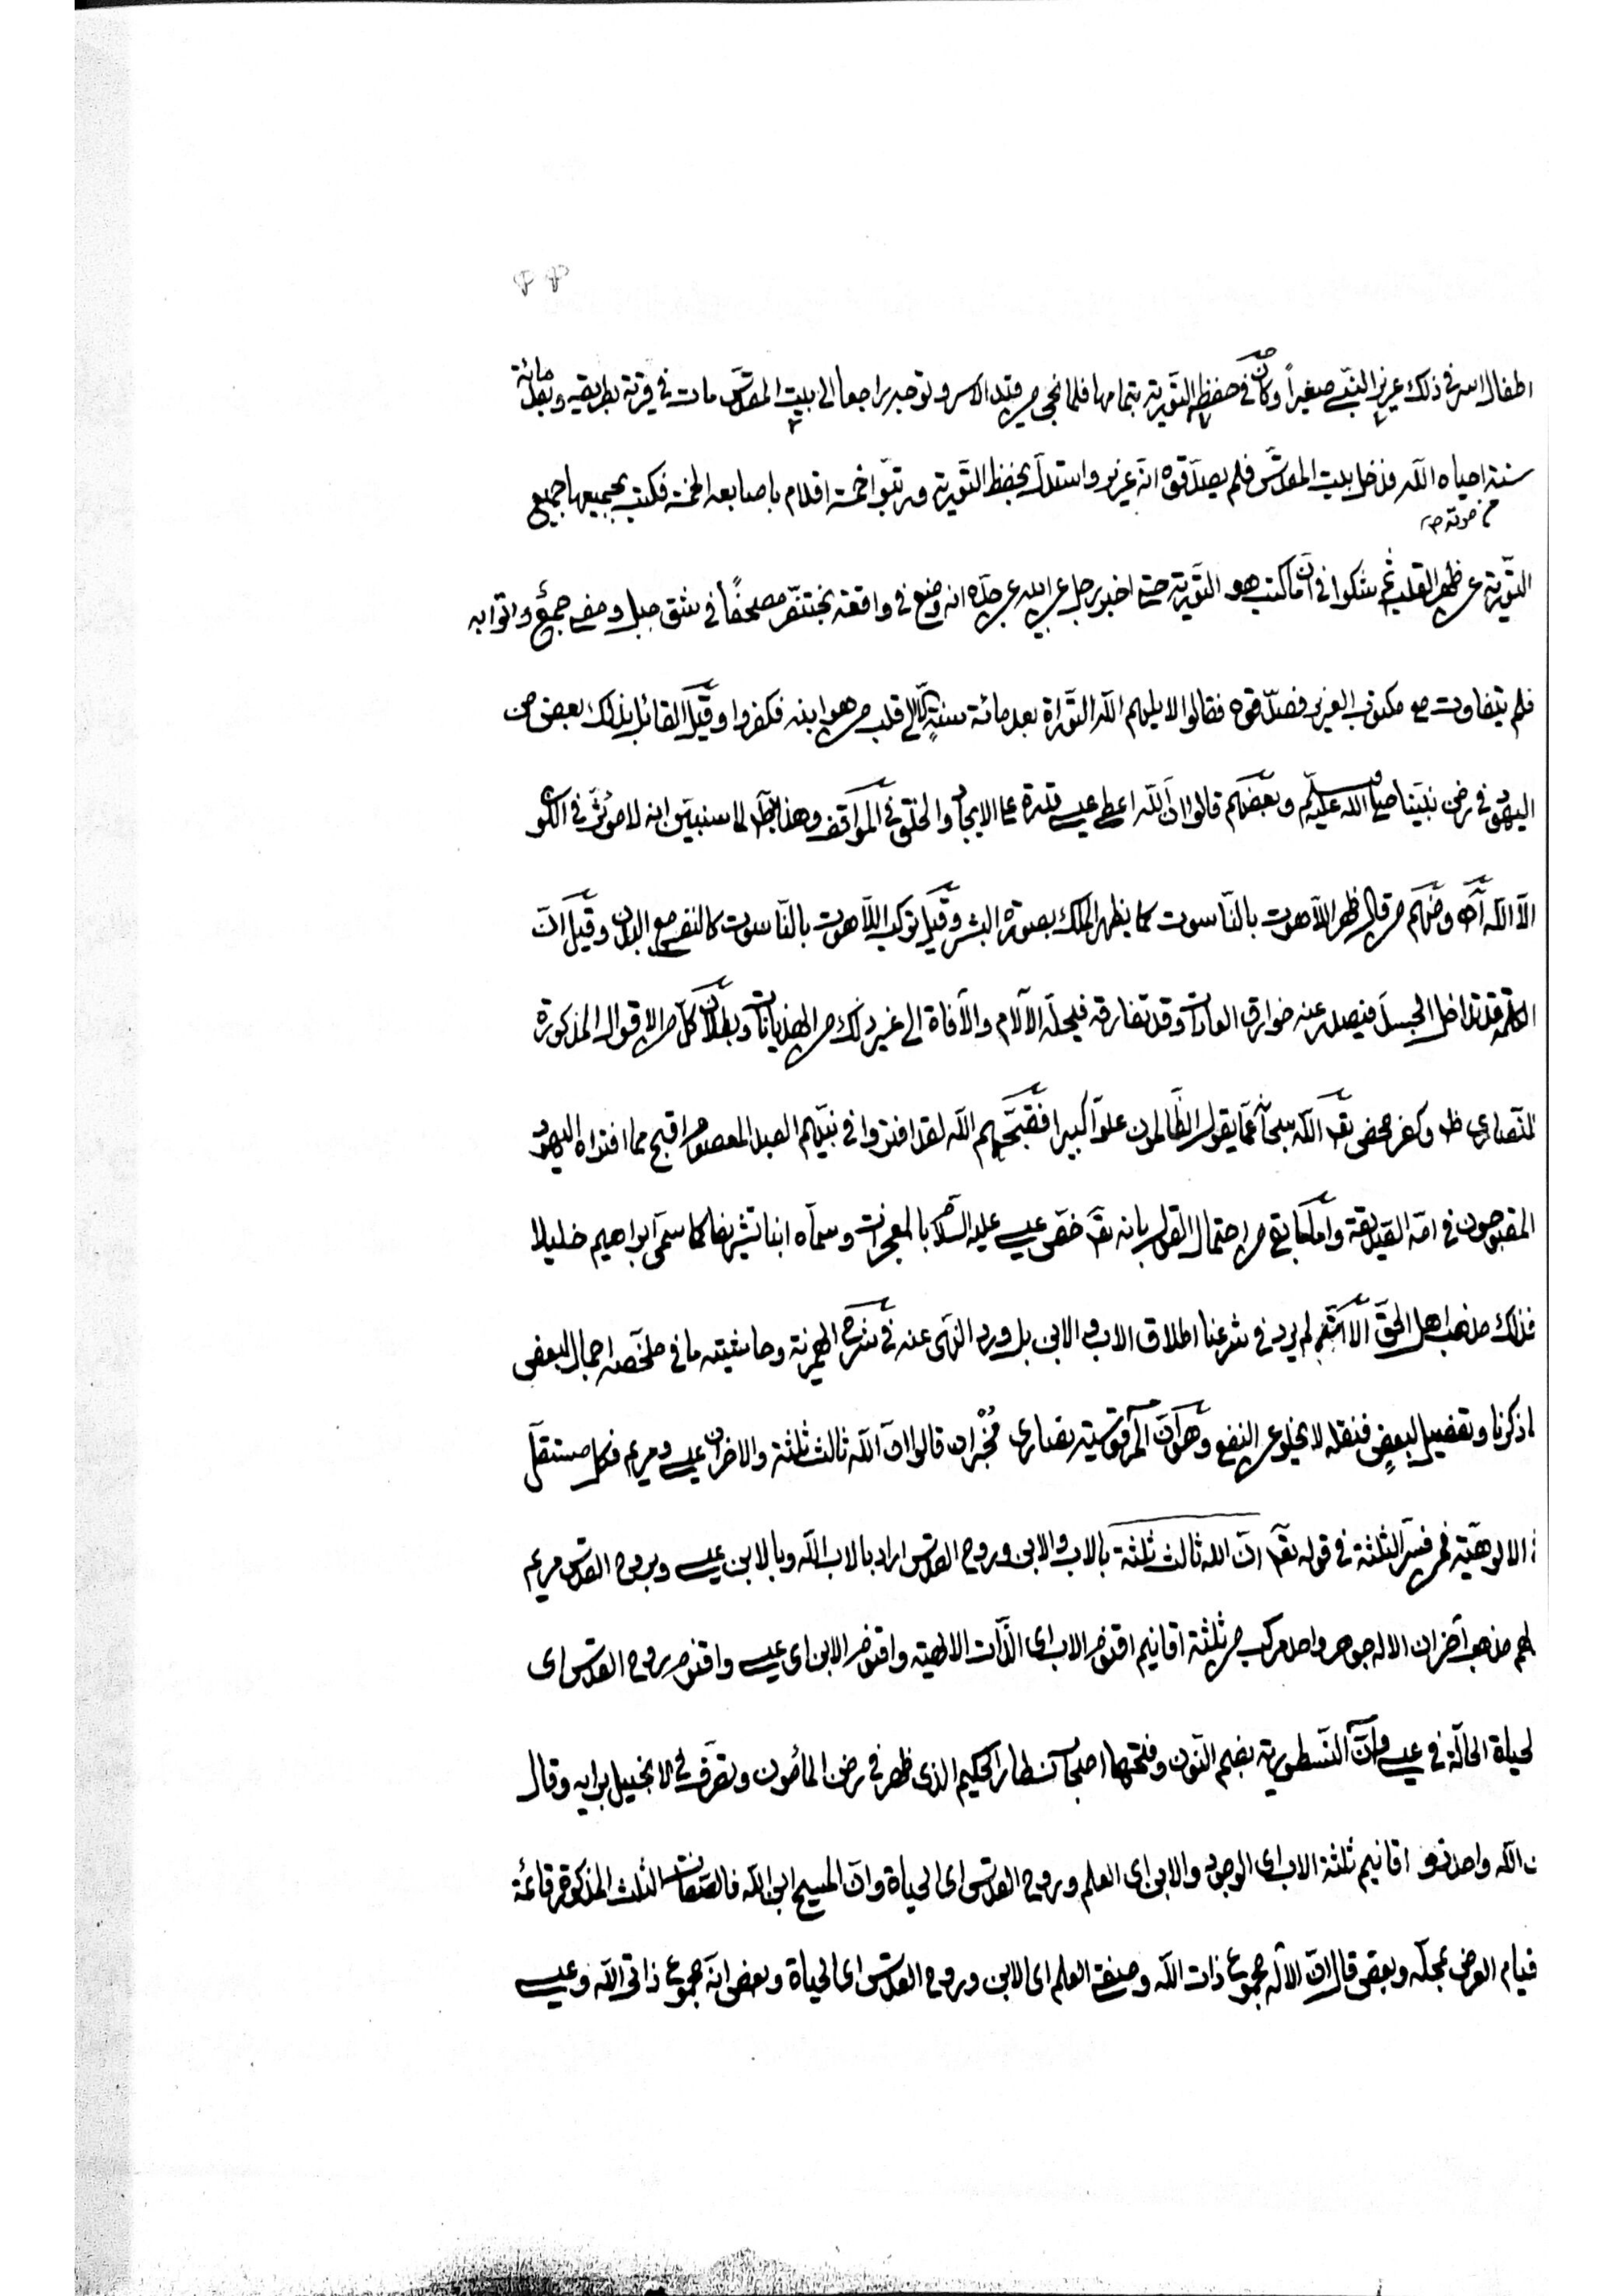 ٤٤
اطفال اسر في ذلك عزير النبي صغيراً وكان في حفظه التورية بتمامها فلما نجى من قيد الاسر وتوجه راجعا الى بيت المقدس مات في قرية بطريقه وبعد مائة
سنة احياه الله فدخل بيت المقدس فلم يصدق قومه انه عزير واستدل بحفظ التورية ورتبوا خمسة اقلام باصابعه الخمسة فكتب بجميعها جميع
من موته صح
التورية عن ظهر القلب ثم شكوا في ان ما كتب هو التورية حتى اخبر رجل عن ابيه عن جده انه وضع في واقعة بختنصر مصحفاً في شق جبل ومضى جميع واتوا به
فلم يتفاوت مع مكتوب العزير فضل قومه فقالوا لا يلهم الله التوراة بعد مائة سنة الا لى قلب من هو ابنه فكفروا وقيل القائل بذلك بعض من
اليهود في زمن نبينا صلى الله عليه وسلم وبعضهم قالوا ان الله اعطى عيسى قدرة على الايجاد والخلق في المواقف وهذا بط لما سنبين ان لا مؤثر في الكون
الا الله آه ومنهم من قال ظهر اللاهوت بالناسوت كما يظهر الملك بصورة البشر وقيل تركب اللاهوت بالناسوت كالنفس مع البدن وقيل ان
الكلمة قد تداخل الجسد فيصدر عنه خوارق العادات وقد تفارقه فيحله الآلام والآفاة الى غير ذلك من الهذيانات وبطلان كل من الاقوال المذكورة
للنصارى ظ وكفر محض تع الله سبحا عما يقول الظالمون علوا كبيرا فقبحهم الله لقد افتروا في نبيهم العبد المعصوم اقبح مما افتراه اليهود
المقبوحون في امه الصديقة واما ما بقى من احتمال القول بانه تع خص عيسى عليه السلام بالمعجزات وسماه ابنا تشريفا كما سمى ابراهيم خليلا
فذلك مذهب اهل الحق الا انه لم يرد في شرعنا اطلاق الاب والابن بل ورد النهى عنه في شرح الهمزية وحاشيته ما في ملخصه اجمال لبعض
ما ذكرنا وتفصيل لبعض فنقله لا يخلو عن النفع وهو ان المرقوسية نصارى نجران قالوا ان الله ثالث ثلثة والاخران عيسى ومريم فكل مستقل
في الالوهية فمن فسر الثلثة في قوله تع ان الله ثالث ثلثة بالاب والابن وروح القدس اراد بالاب الله وبالابن عيسى وبروح القدس مريم
لهم مذهب آخر ان الاله جوهر واحد مركب من ثلثة اقانيم اقنوم الاب اى الذات الالهية واقنوم الابن اى عيسى واقنوم روح القدس اى
لحياة الحالة في عيسى وان النسطورية بضم النون وفتحها اصحاب نسطار الحكيم الذى ظهر في زمن المأمون وتصرف في الانجيل برايه وقال
ن الله واحد ذو اقانيم ثلثة الاب اى الوجود والابن اى العلم وروح القدس اى الحياة وان المسيح ابن الله فالصفات الثلث المذكورة قائمة
قيام العرض بمحله وبعض قال ان الآله مجموع ذات الله وصفة العلم اى الابن وروح القدس اى الحياة وبعض انه مجموع ذاتى الله وعيسى